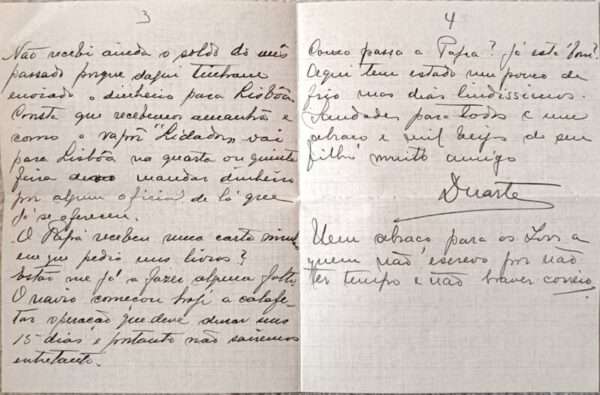 3
Não recebi ainda o soldo do mês
passado porque daqui tinham
enviado o dinheiro para Lisbôa.
Consta que recebemos amanhã e
como o vapôr "Lidador" vai
para Lisbôa na quarta ou quinta
feira devo mandar dinheiro
por algum oficial de lá que
já se ofereceu.
O Papá recebeu uma carta minha
em que pedia uns livros?
Estão me já a fazer alguma falta.
O navio começou hoje a calafe-
tar operação que deve durar uns
15 dias e portanto não sairemos
entretanto.
4
Como passa a Papá? Já está bom?
Aqui tem estado um pouco de
frio mas dias lindissimos.
Saudades para todos e um
abraco e mil beijos de seu
filho muito amigo
Duarte
Um abraco para os
quem não escrevo por não
ter tempo e não haver correio.